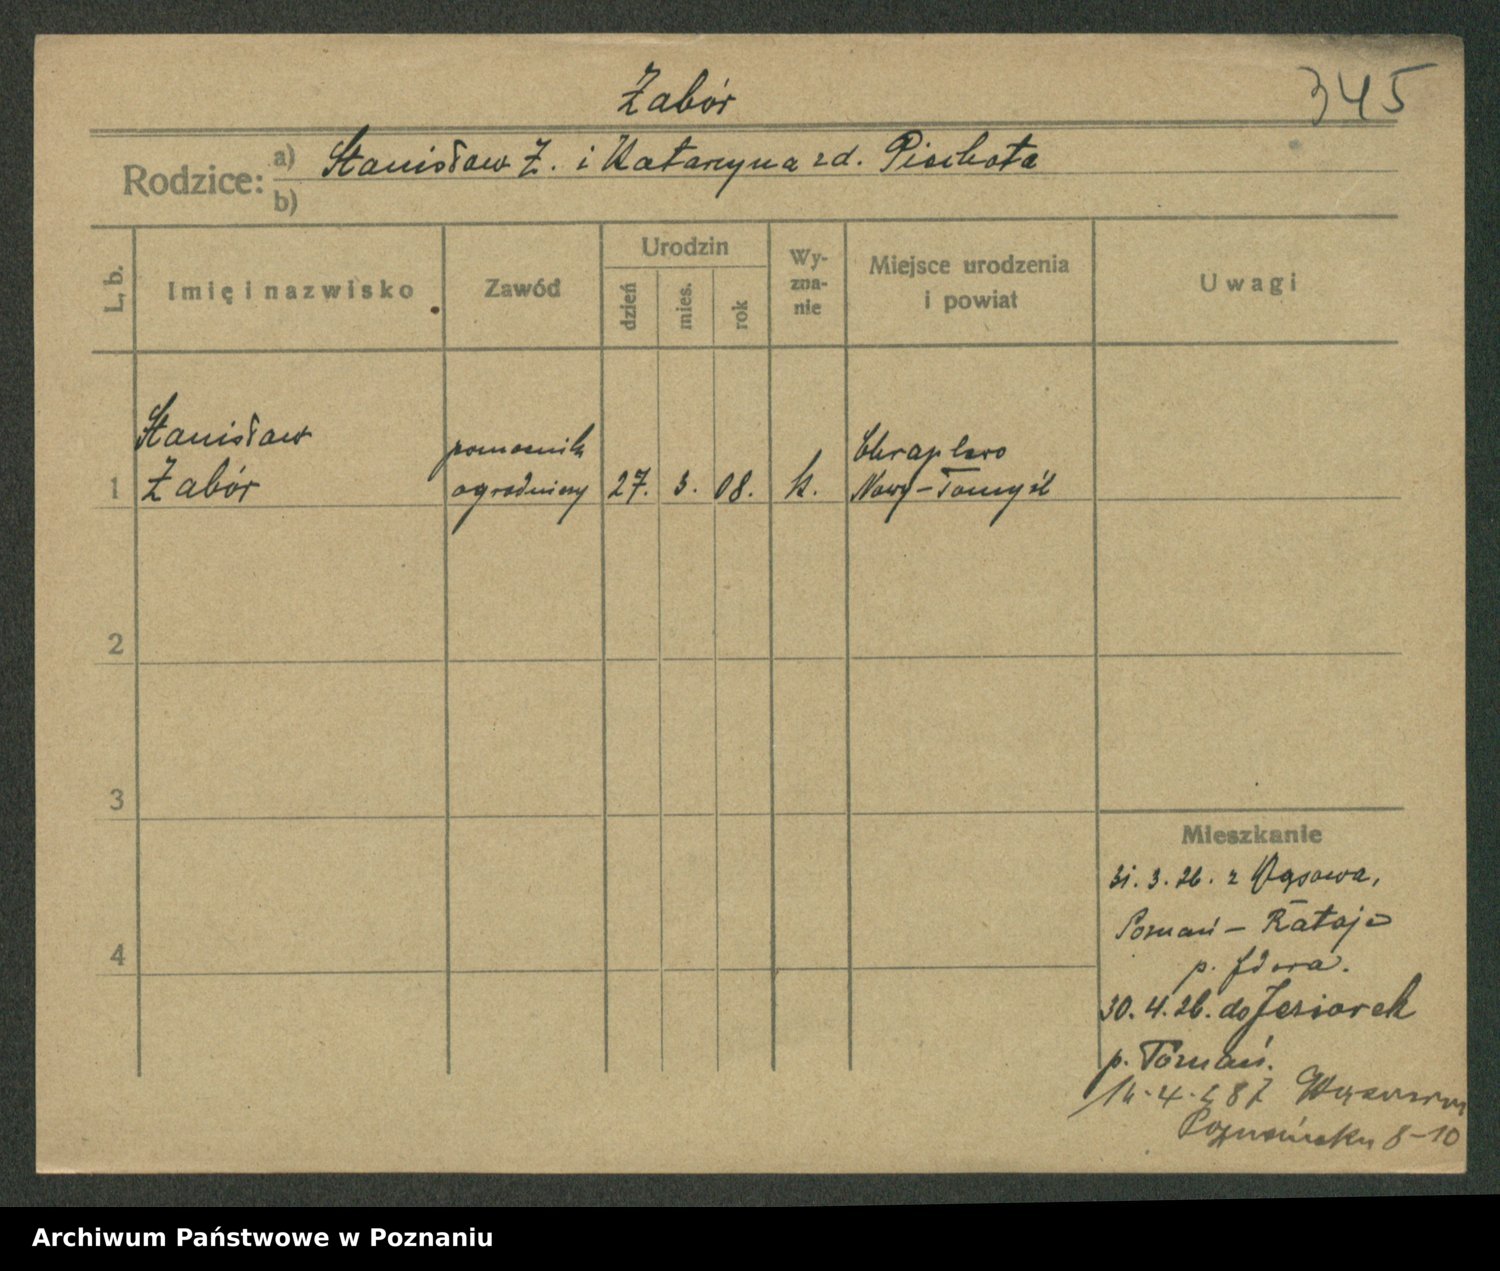 Żabór
345
Rodzice: a) Stanisław Ż. i Katarzyna zd. Piechota
b)
L. b.
Imię i nazwisko
Zawód
Urodzin
dzień
mies.
rok
Wy-
zna-
nie
Miejsce urodzenia
i powiat
Uwagi
Stanisław
1 Żabór
pomocnik
ogrodniczy
27. 3. 08.
k.
Chraplewo
Nowy-Tomyśl
2
3
4
Mieszkanie
31. 3. 26. z Wąsowa,
Poznań – Rataje
p.
30. 4. 26. do Jeziorek
p. Poznań.
Poznańska 8-10
Archiwum Państwowe w Poznaniu